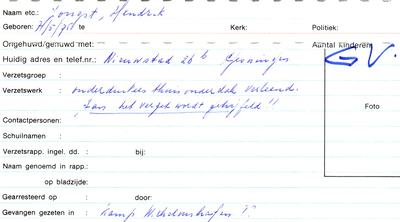 Naam etc.: Jongst, Hendrik
Geboren: 7/5/75 te Kerk: Politiek:
Ongehuwd/gehuwd met: Aantal kinderen:
G.V.
Huidig adres en telef.nr.: Nieuwstad 26 b Groningen
Verzetsgroep :
Verzetswerk : onderduikers thuis onderdak verleend.
"Aan het verzet wordt getwijfeld"!
Foto
Contactpersonen:
Schuilnaam :
Verzetsrapp. ingel. dd. : bij:
Naam genoemd in rapp.:
op bladzijde:
Gearresteerd op : door:
Gevangen gezeten in : Kamp Wilhelmshafen ??